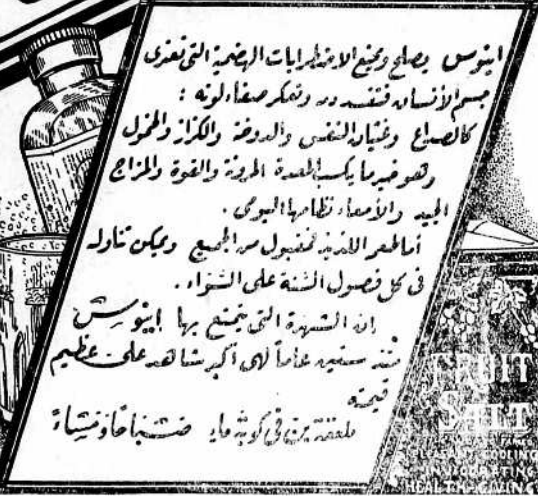 اينوس يصلح ويمنع الاضطرابات الهضمية التى تعترى
جسم الأنسان فتفسد دمه وتعكر صفاء لونه :
كالصداع وغثيان النفس والدوخة والكزاز والخمول
وهو خير ما يكسب المعدة المرونة والقوة والمزاج
الجيد والأمعاء نظامها اليومى .
أما طعمه اللذيذ فمقبول من الجميع ويمكن تناوله
فى كل فصول السنة على السواء .
إن الشهرة التى يتمتع بها اينوس
منذ ستين عاماً لهى أكبر شاهد على عظيم
قيمته
ملعقة بن فى كوبة ماء صباحاً ومساءً
FRUIT
SALT
FAMED
PLEASANT COOLING
INVIGORATING
HEALTH-GIVING